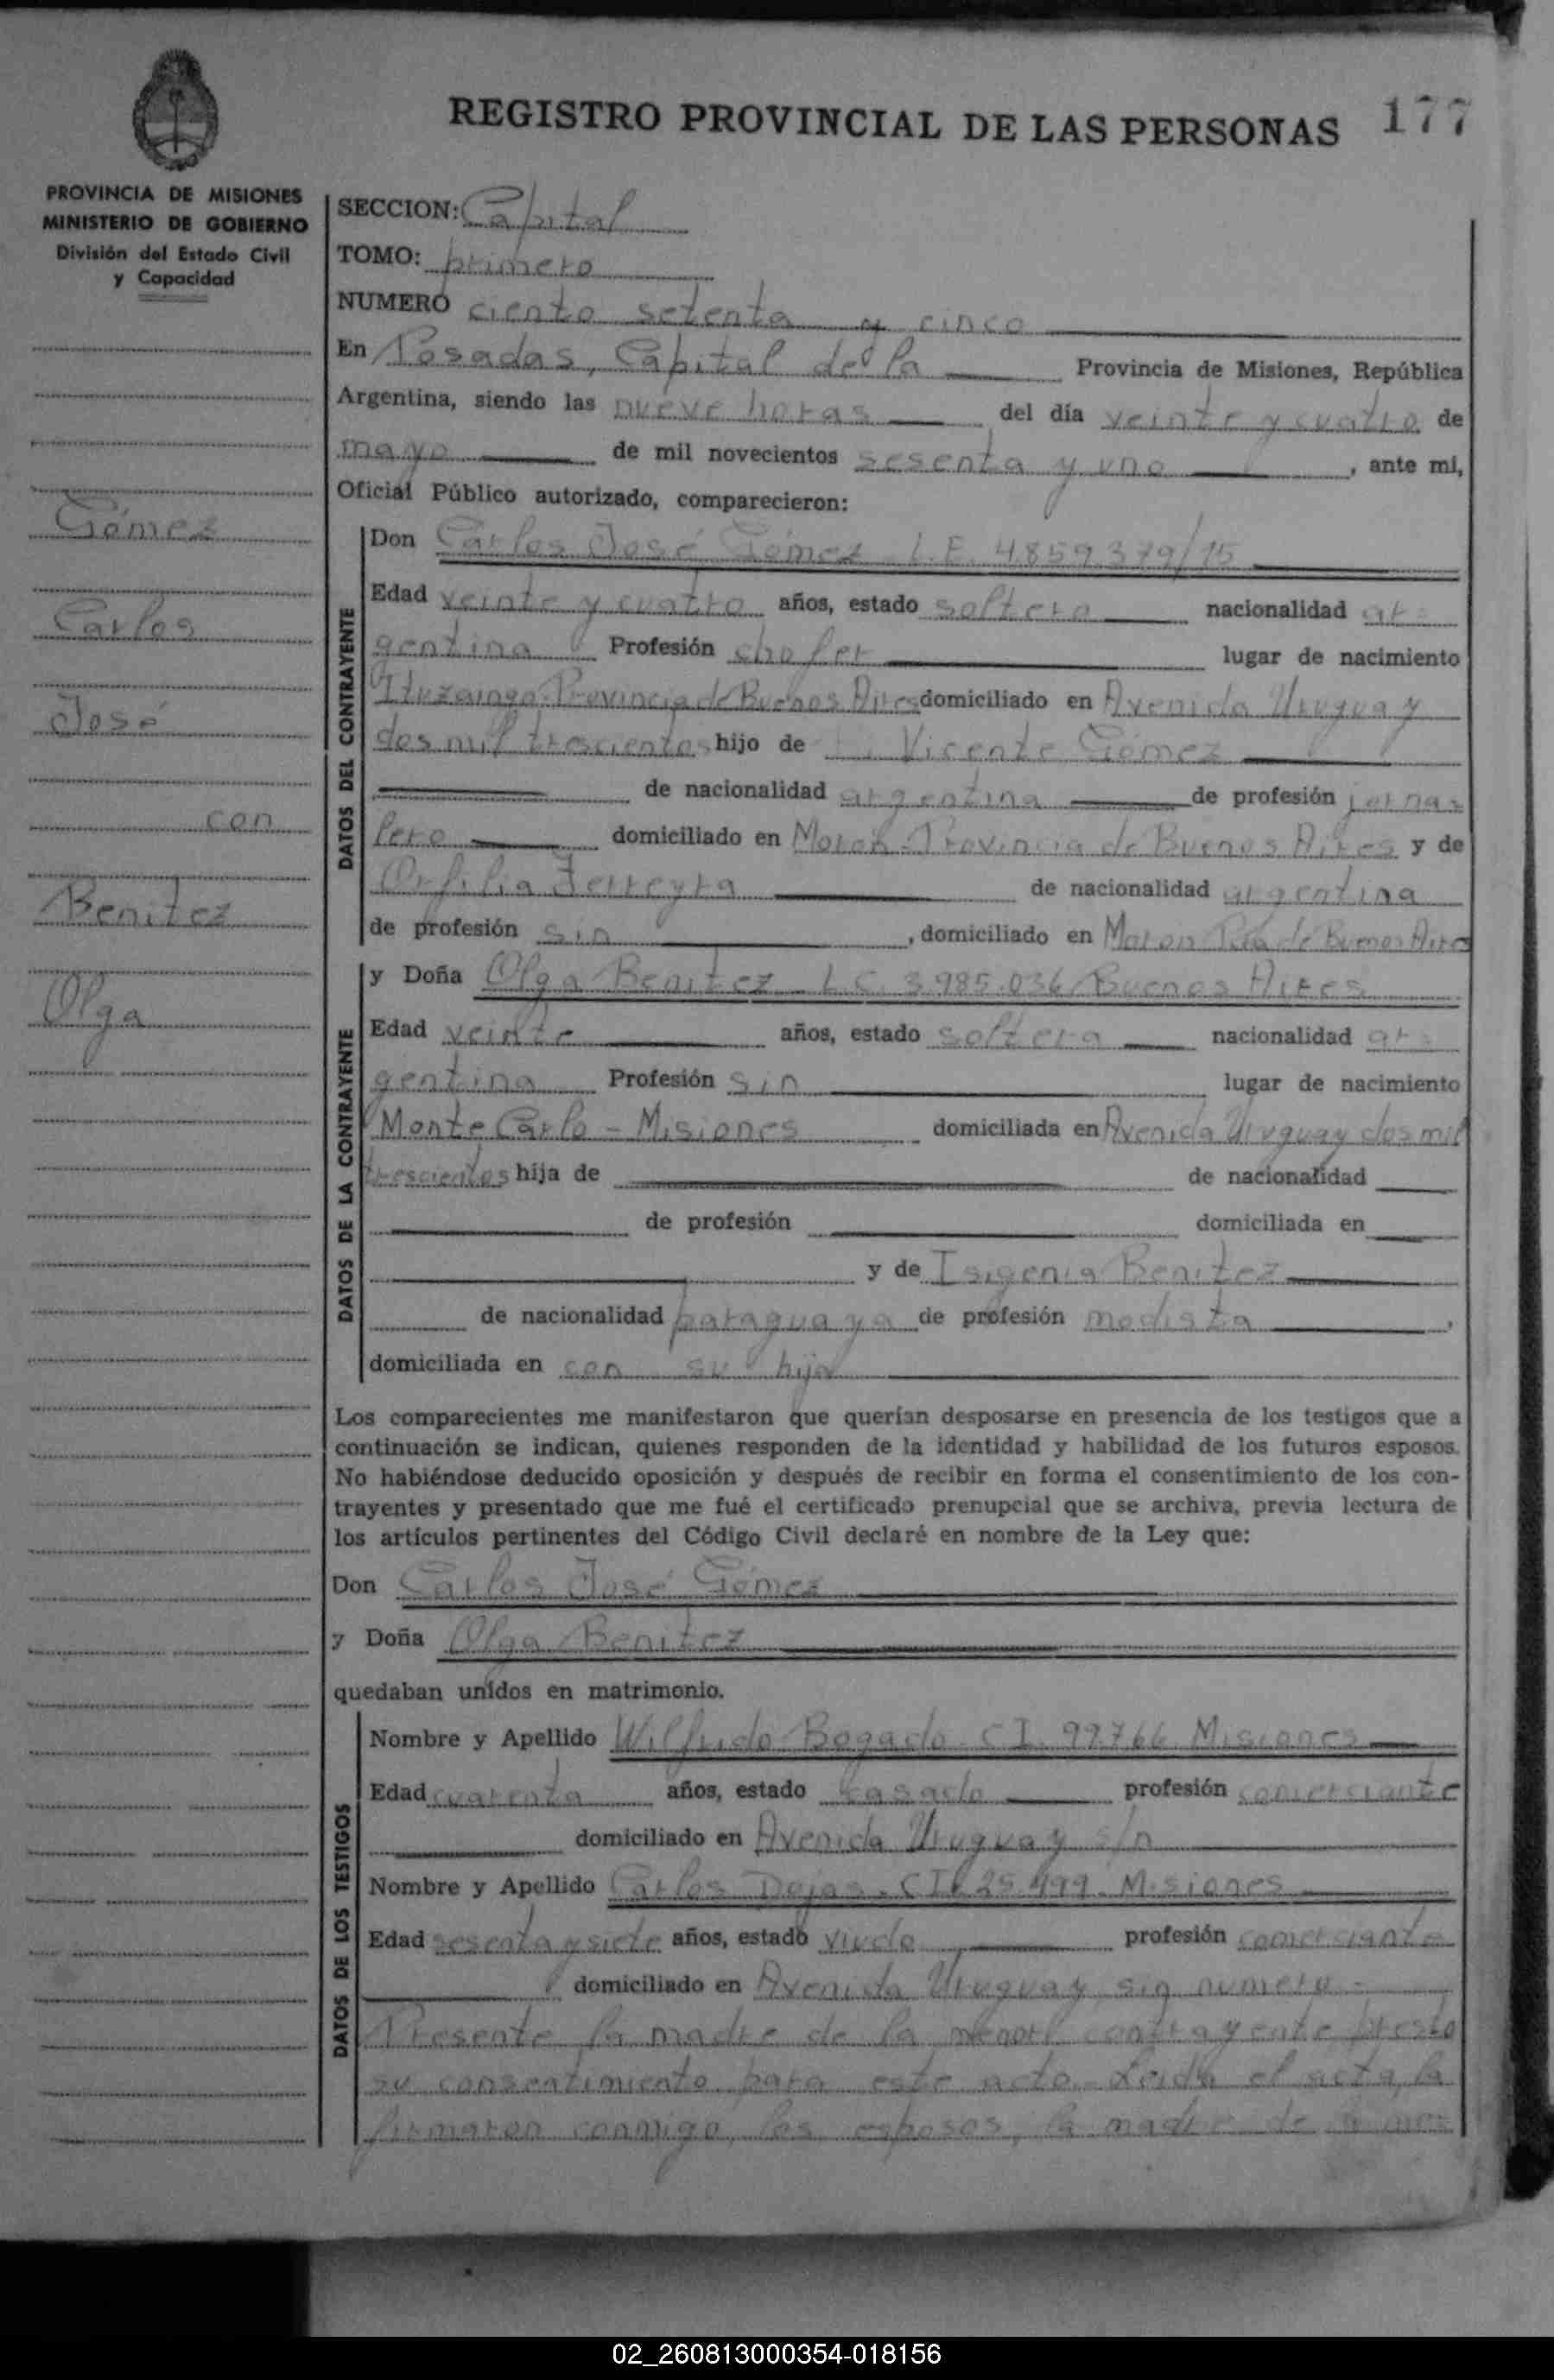 REGISTRO PROVINCIAL DE LAS PERSONAS 177
PROVINCIA DE MISIONES
MINISTERIO DE GOBIERNO
División del Estado Civil
y Capacidad
Gómez
Carlos
José
con
Benitez
Olga
SECCION: Capital
TOMO: primero
NUMERO ciento setenta y cinco
En Posadas, Capital de la Provincia de Misiones, República
Argentina, siendo las nueve horas del día veinte y cuatro de
mayo de mil novecientos sesenta y uno, ante mi,
Oficial Público autorizado, comparecieron:
DATOS DEL CONTRAYENTE
Don Carlos José Gómez L.E. 4.859.379/15
Edad veinte y cuatro años, estado soltero nacionalidad ar-
gentina Profesión chofer lugar de nacimiento
Ituzaingo Provincia de Buenos Aires domiciliado en Avenida Uruguay
dos mil trescientos hijo de Vicente Gómez
de nacionalidad argentina de profesión jorna-
lero domiciliado en Morón - Provincia de Buenos Aires y de
Orfilia Ferreyra de nacionalidad argentina
de profesión sin, domiciliado en Moron Pcia de Buenos Aires
DATOS DE LA CONTRAYENTE
y Doña Olga Benitez - L.C. 3.985.036 Buenos Aires
Edad veinte años, estado soltera nacionalidad ar-
gentina Profesión sin lugar de nacimiento
Monte Carlo - Misiones domiciliada en Avenida Uruguay dos mil
trescientos hija de de nacionalidad
de profesión domiciliada en
y de Isigenia Benitez
de nacionalidad paraguaya de profesión modista,
domiciliada en con su hija
Los comparecientes me manifestaron que querían desposarse en presencia de los testigos que a
continuación se indican, quienes responden de la identidad y habilidad de los futuros esposos.
No habiéndose deducido oposición y después de recibir en forma el consentimiento de los con-
trayentes y presentado que me fué el certificado prenupcial que se archiva, previa lectura de
los artículos pertinentes del Código Civil declaré en nombre de la Ley que:
Don Carlos José Gómez
y Doña Olga Benitez
quedaban unidos en matrimonio.
DATOS DE LOS TESTIGOS
Nombre y Apellido Wilfrido Bogado - C.I. 99.766 Misiones
Edad cuarenta años, estado casado profesión comerciante
domiciliado en Avenida Uruguay s/n
Nombre y Apellido Carlos Dojas. C.I. 25.499. Misiones
Edad sesenta y siete años, estado viudo profesión comerciante
domiciliado en Avenida Uruguay sin numero.-
Presente la madre de la menor contrayente presto
su consentimiento para este acto. Leida el acta, la
firmaron conmigo, los esposos, la madre de
02_260813000354-018156